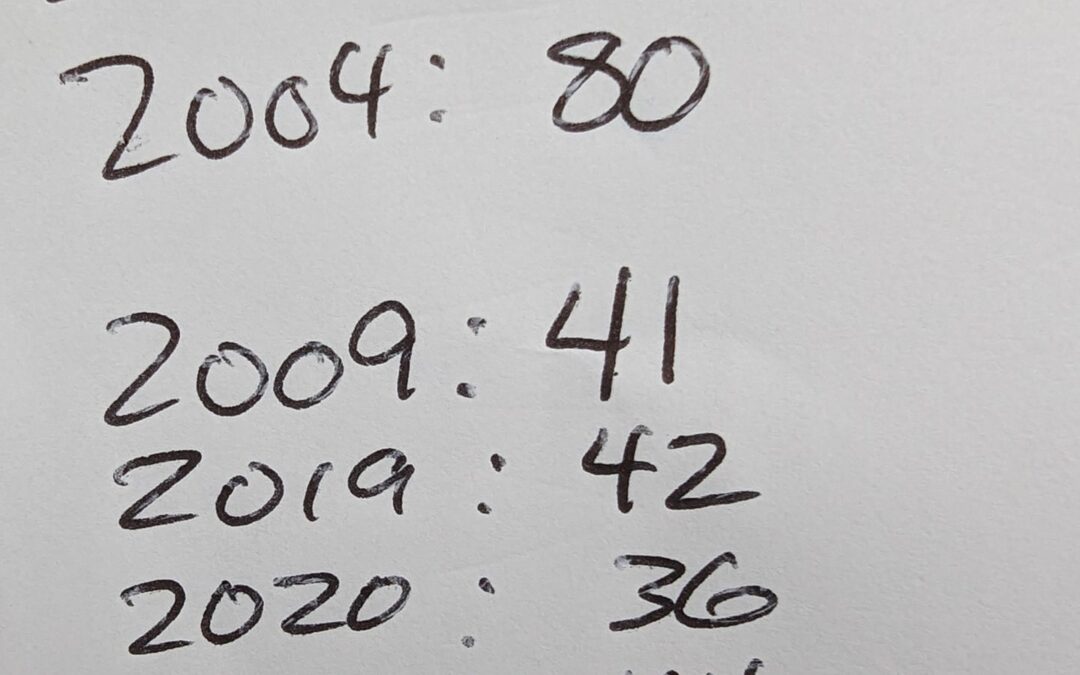 2004: 80
2009: 41
2019: 42
2020: 36